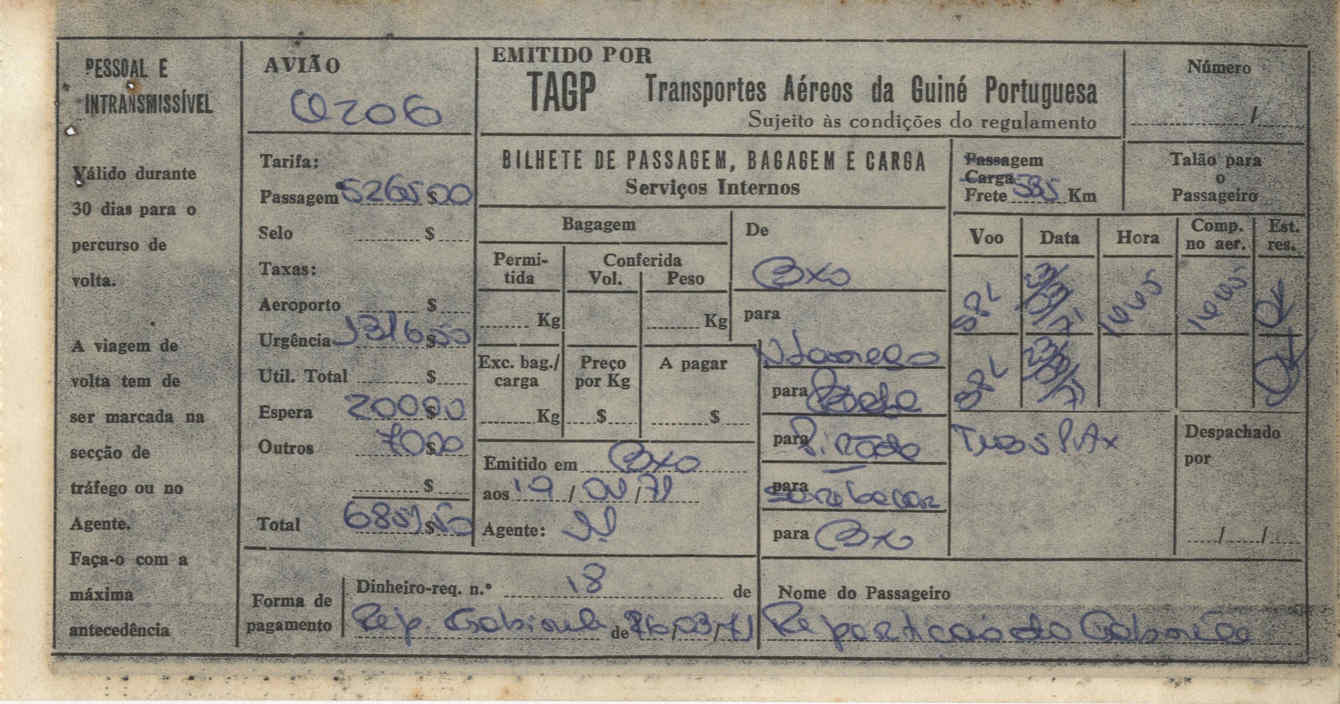 PESSOAL E
INTRANSMISSÍVEL
Válido durante
30 dias para o
percurso de
volta.
A viagem de
volta tem de
ser marcada na
secção de
tráfego ou no
Agente.
Faça-o com a
máxima
antecedência
AVIÃO
Tarifa:
Passagem 5265$00
Selo $
Taxas:
Aeroporto $
Urgência 1316$50
Util. Total $
Espera 200$00
Outros 70$00
$
Total 6851$50
EMITIDO POR
TAGP Transportes Aéreos da Guiné Portuguesa
Sujeito às condições do regulamento
Número
/
BILHETE DE PASSAGEM, BAGAGEM E CARGA
Serviços Internos
Passagem
Carga
Frete 585 Km
Talão para
o
Passageiro
Bagagem
Permi-
tida
Conferida
Vol. Peso
Kg Kg
Exc. bag./
carga
Preço
por Kg
A pagar
Kg $ $
Emitido em Bxo
aos 19 / /71
Agente:
De
Bxo
para
para
para Pirada
para
para Bxo
Voo Data Hora Comp.
no aer. Est.
res.
SPL 1445 1445 OK
SPL OK
Tres PAx
Despachado
por
/ /
Forma de
pagamento
Dinheiro-req. n.º 18 de
Rep. Gabinete de 26/03/71
Nome do Passageiro
Repartição do Gabinete